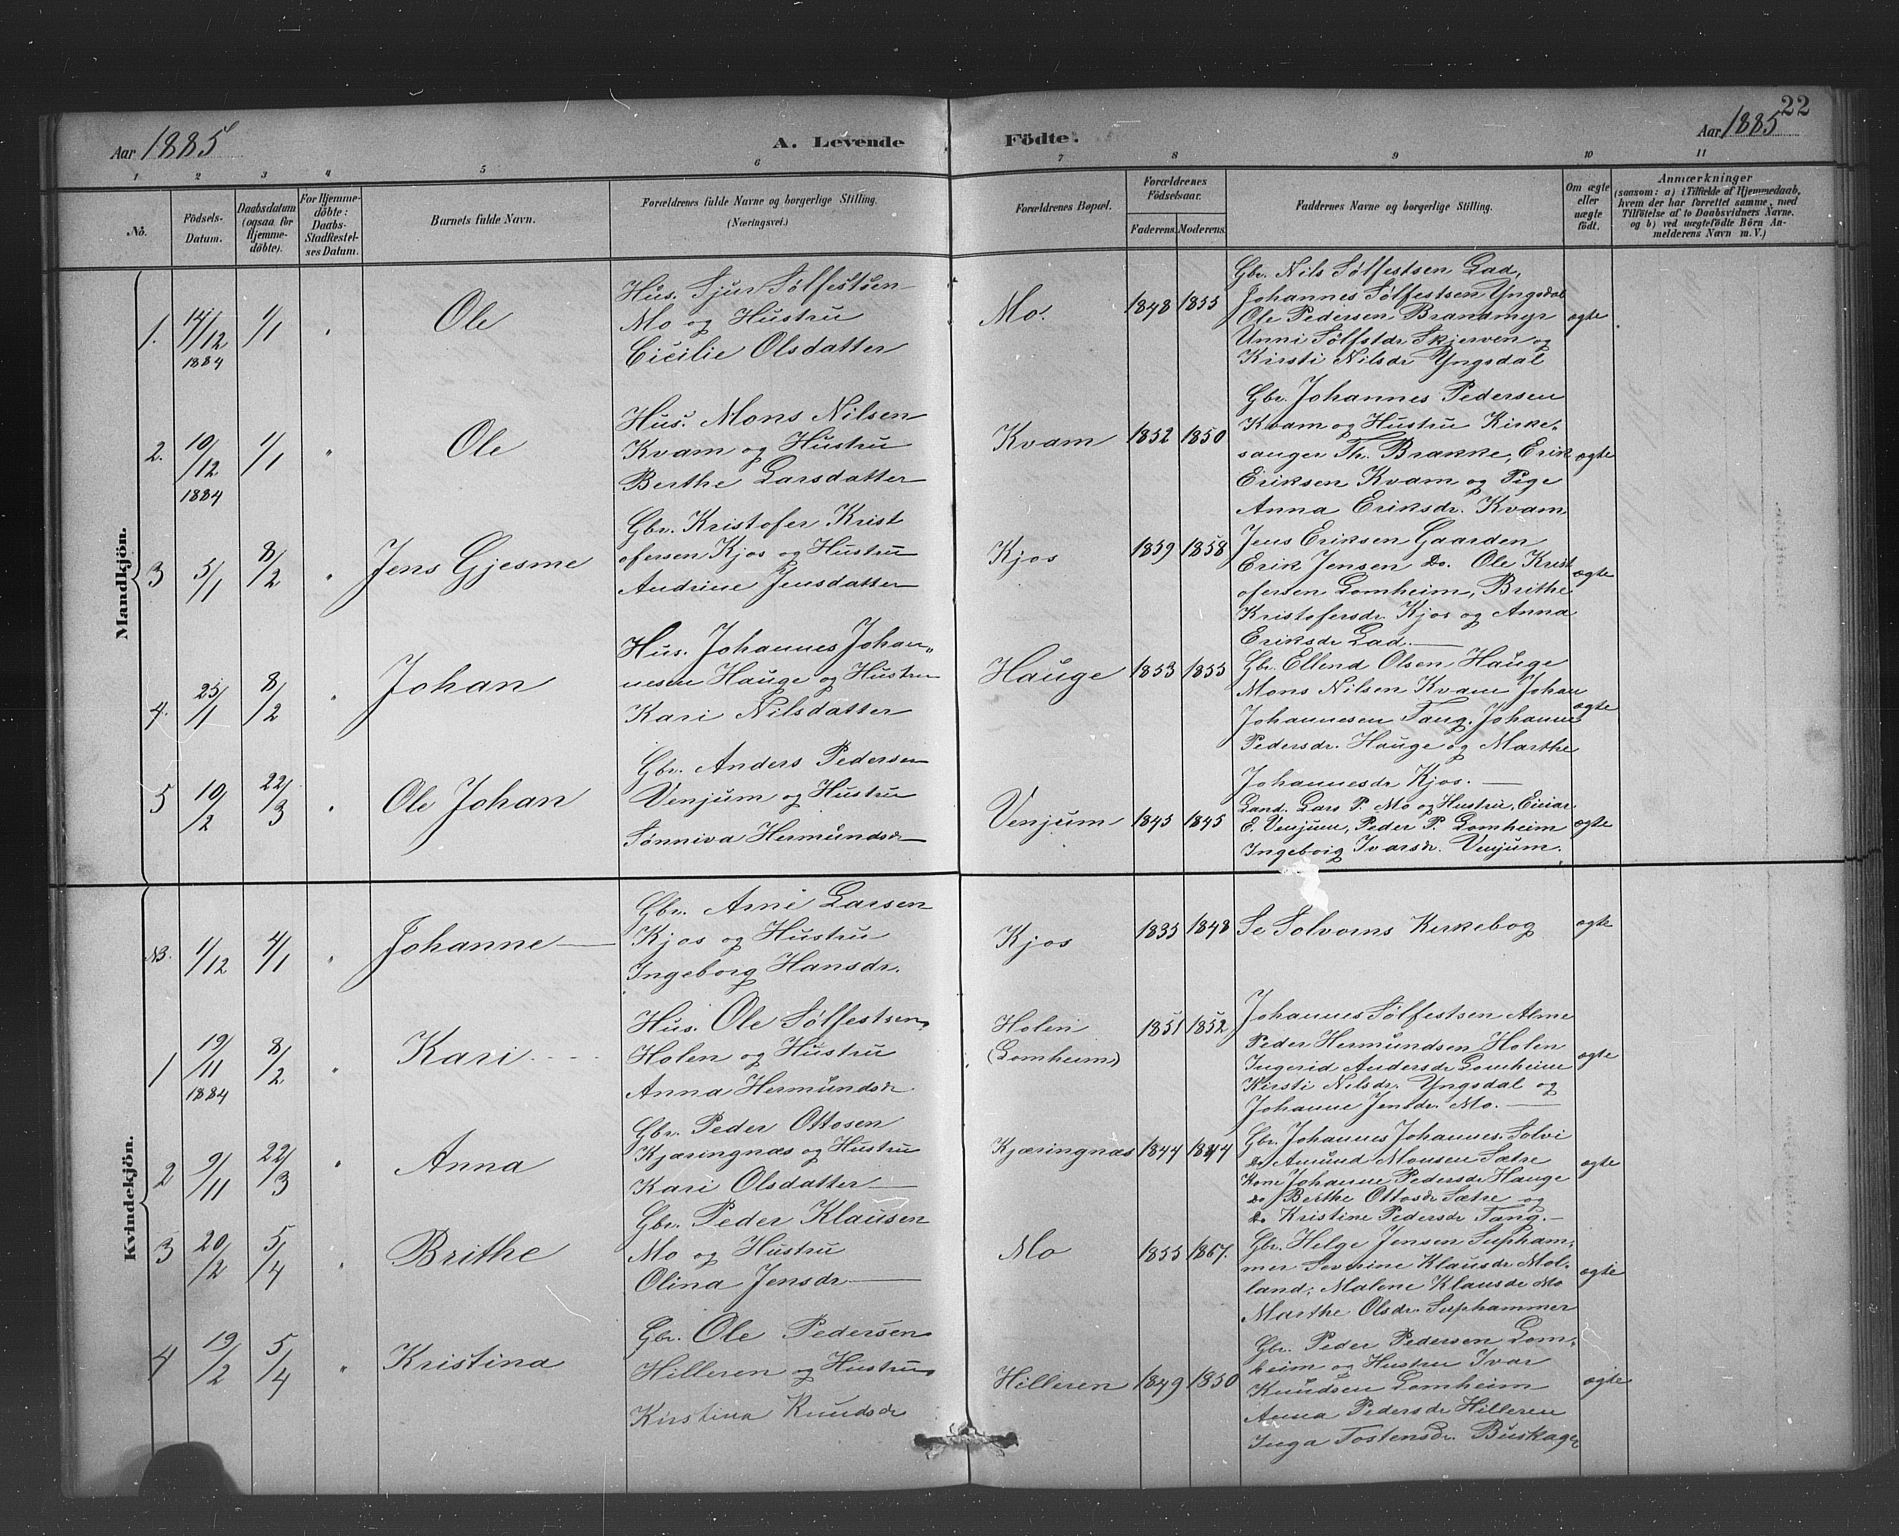 22
Aar 1885
A. Levende
Födte.
Aar 1885
1 2 3 4 5 6 7 8 9 10 11
No.
Födsels-
Datum.
Daabsdatum
(ogsaa for
Hjemme-
döbte).
For Hjemme-
döbte:
Daabs-
Stadfæstel-
ses Datum.
Barnets fulde Navn.
Forældrenes fulde Navne og borgerlige Stilling.
(Næringsvei.)
Forældrenes Bopæl.
Forældrenes
Födselsaar.
Faderens. Moderens.
Faddernes Navne og borgerlige Stilling.
Om ægte
eller
uægte
födt.
Anmærkninger
(saasom: a) i Tilfælde af Hjemmedaab,
hvem der har forrettet samme, med
Tilföielse af to Daabsvidners Navne,
og b) ved uægtefödte Börn An-
melderens Navn m. V.)
Mandkjön.
1. 14/12 1884 1/1 " Ole
Hus. Sjur Sølfestsen
Mo og Hustru
Cicilie Olsdatter
Mo. 1848 1855
Gbr. Nils Sølfestsen Lad,
Johannes Sølfestsen Yngsdal
Ole Pedersen Brandmyr
Unni Sølfstdr Skjerven og
Kirsti Nilsdr Yngsdal
ægte
2. 10/12 1884 1/1 " Ole
Hus. Mons Nilsen
Kvam og Hustru
Berthe Larsdatter
Kvam 1852 1850
Gbr. Johannes Pedersen
Kvam og Hustru Kirke-
sanger Th. Brakke, Erik
Eriksen Kvam og Pige
Anna Eriksdr. Kvam
ægte
3 5/1 8/2 " Jens Gjesme
Gbr. Kristofer Krist
ofersen Kjos og Hustru
Andrine Jensdatter
Kjos 1859 1858
Jens Eriksen Gaarden
Erik Jensen Do. Ole Krist
ofersen Lomheim, Brithe
Kristofersdr. Kjos og Anna
Eriksdr Lad
ægte
4. 25/1 8/2 " Johan
Hus. Johannes Johan-
nesen Hauge og Hustru
Kari Nilsdatter
Hauge 1853 1855
Gbr. Ellend Olsen Hauge
Mons Nilsen Kvam Johan
Johannesen Tang, Johanne
Pedersdr. Hauge og Marthe
Johannesdr Kjos.
ægte
5 10/2 22/3 " Ole Johan
Gbr. Anders Pedersen
Venjum og Hustru
Sønniva Hermundsdr
Venjum 1845 1845
Land. Lars P. Mo og Hustru, Einar
E. Venjum, Peder P. Lomheim
Ingeborg Ivarsdr. Venjum.
ægte
Kvindekjön.
NB. 1/12 4/1 " Johanne
Gbr. Arni Larsen
Kjos og Hustru
Ingeborg Hansdr.
Kjos 1835 1848
Se Solvorns Kirkebog
ægte
1 19/11 1884 8/2 " Kari
Hus. Ole Sølfestsen
Holen og Hustru
Anna Hermundsdr
Holen
(Lomheim)
1851 1852
Johannes Sølfestsen Alme
Peder Hermundsen Holen
Ingerid Andersdr Lomheim
Kirsti Nilsdr. Yngsdal og
Johanne Jensdr. Mo.
ægte
2 9/11 22/3 " Anna
Gbr. Peder Ottosen
Kjæringnæs og Hustru
Kari Olsdatter
Kjæringnæs 1844 1844
Gbr. Johannes Johannes. Solvi
Do Amund Monsen Sætre
Kone Johanne Pedersdr Hauge
Do Berthe Ottosdr Sætre og
Do Kristine Pedersdr Tang.
ægte
3 20/2 5/4 " Brithe
Gbr. Peder Klausen
Mo og Hustru
Olina Jensdr
Mo 1855 1857.
Gbr. Helge Jensen Supham-
mer Severine Klausdr Mol-
land, Malene Klausdr Mo
Marthe Olsdr. Suphammer
ægte
4 19/2 5/4 " Kristina
Gbr. Ole Pedersen
Hilleren og Hustru
Kirstina Knudsdr
Hilleren 1849 1850
Gbr. Peder Pedersen Lom-
heim og Hustru Ivar
Knudsen Lomheim
Anna Pedersdr Hilleren
Inga Tostensdr. Buskage
ægte